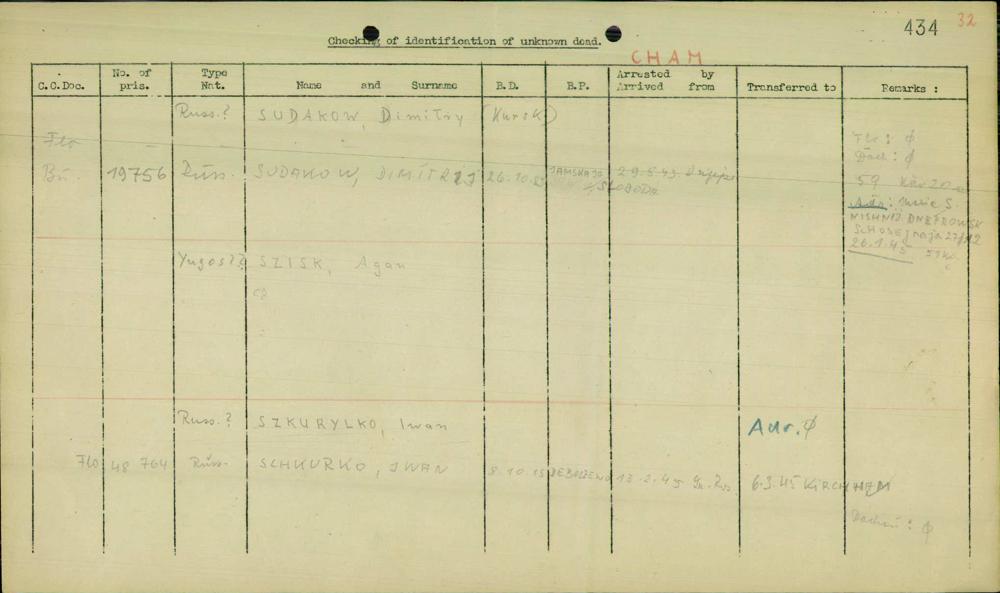 434 32
Checking of identification of unknown dead.
CHAM
C.C.Doc. No. of pris. Type Nat. Name and Surname B.D. B.P. Arrested by Arrived from Transferred to Remarks :
Russ.? SUDAKOW, Dimitry (Kursk)
Flo
Flo : ϕ
Dach : ϕ
Bu. 19756 Russ. SUDAKOW, DIMITRIJ 26.10. JAMSKAJA SLOBODA 29.5.43
59
Adr.: S.
NISHNIJ DNEPROWSK
26.1.45
Yugos?? SZISK, Agan
Russ.? SZKURYLKO, Iwan Adr. ϕ
Flo 48 764 Russ. SCHKURKO, IWAN 8.10.15 13.2.45 6.3.45 KIRCHHEIM
Dachau : ϕ